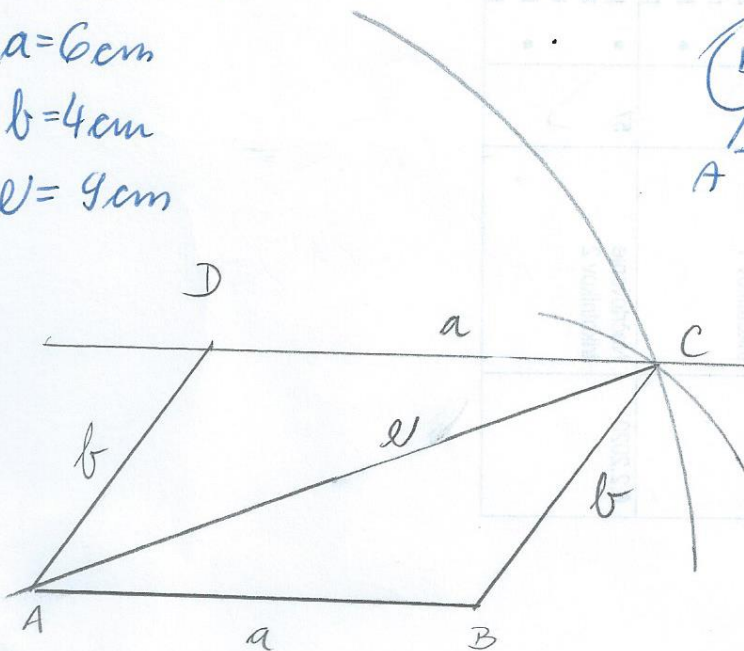 a=6cm
b=4cm
e=9cm
A
D
a
C
e
b
b
A
a
B